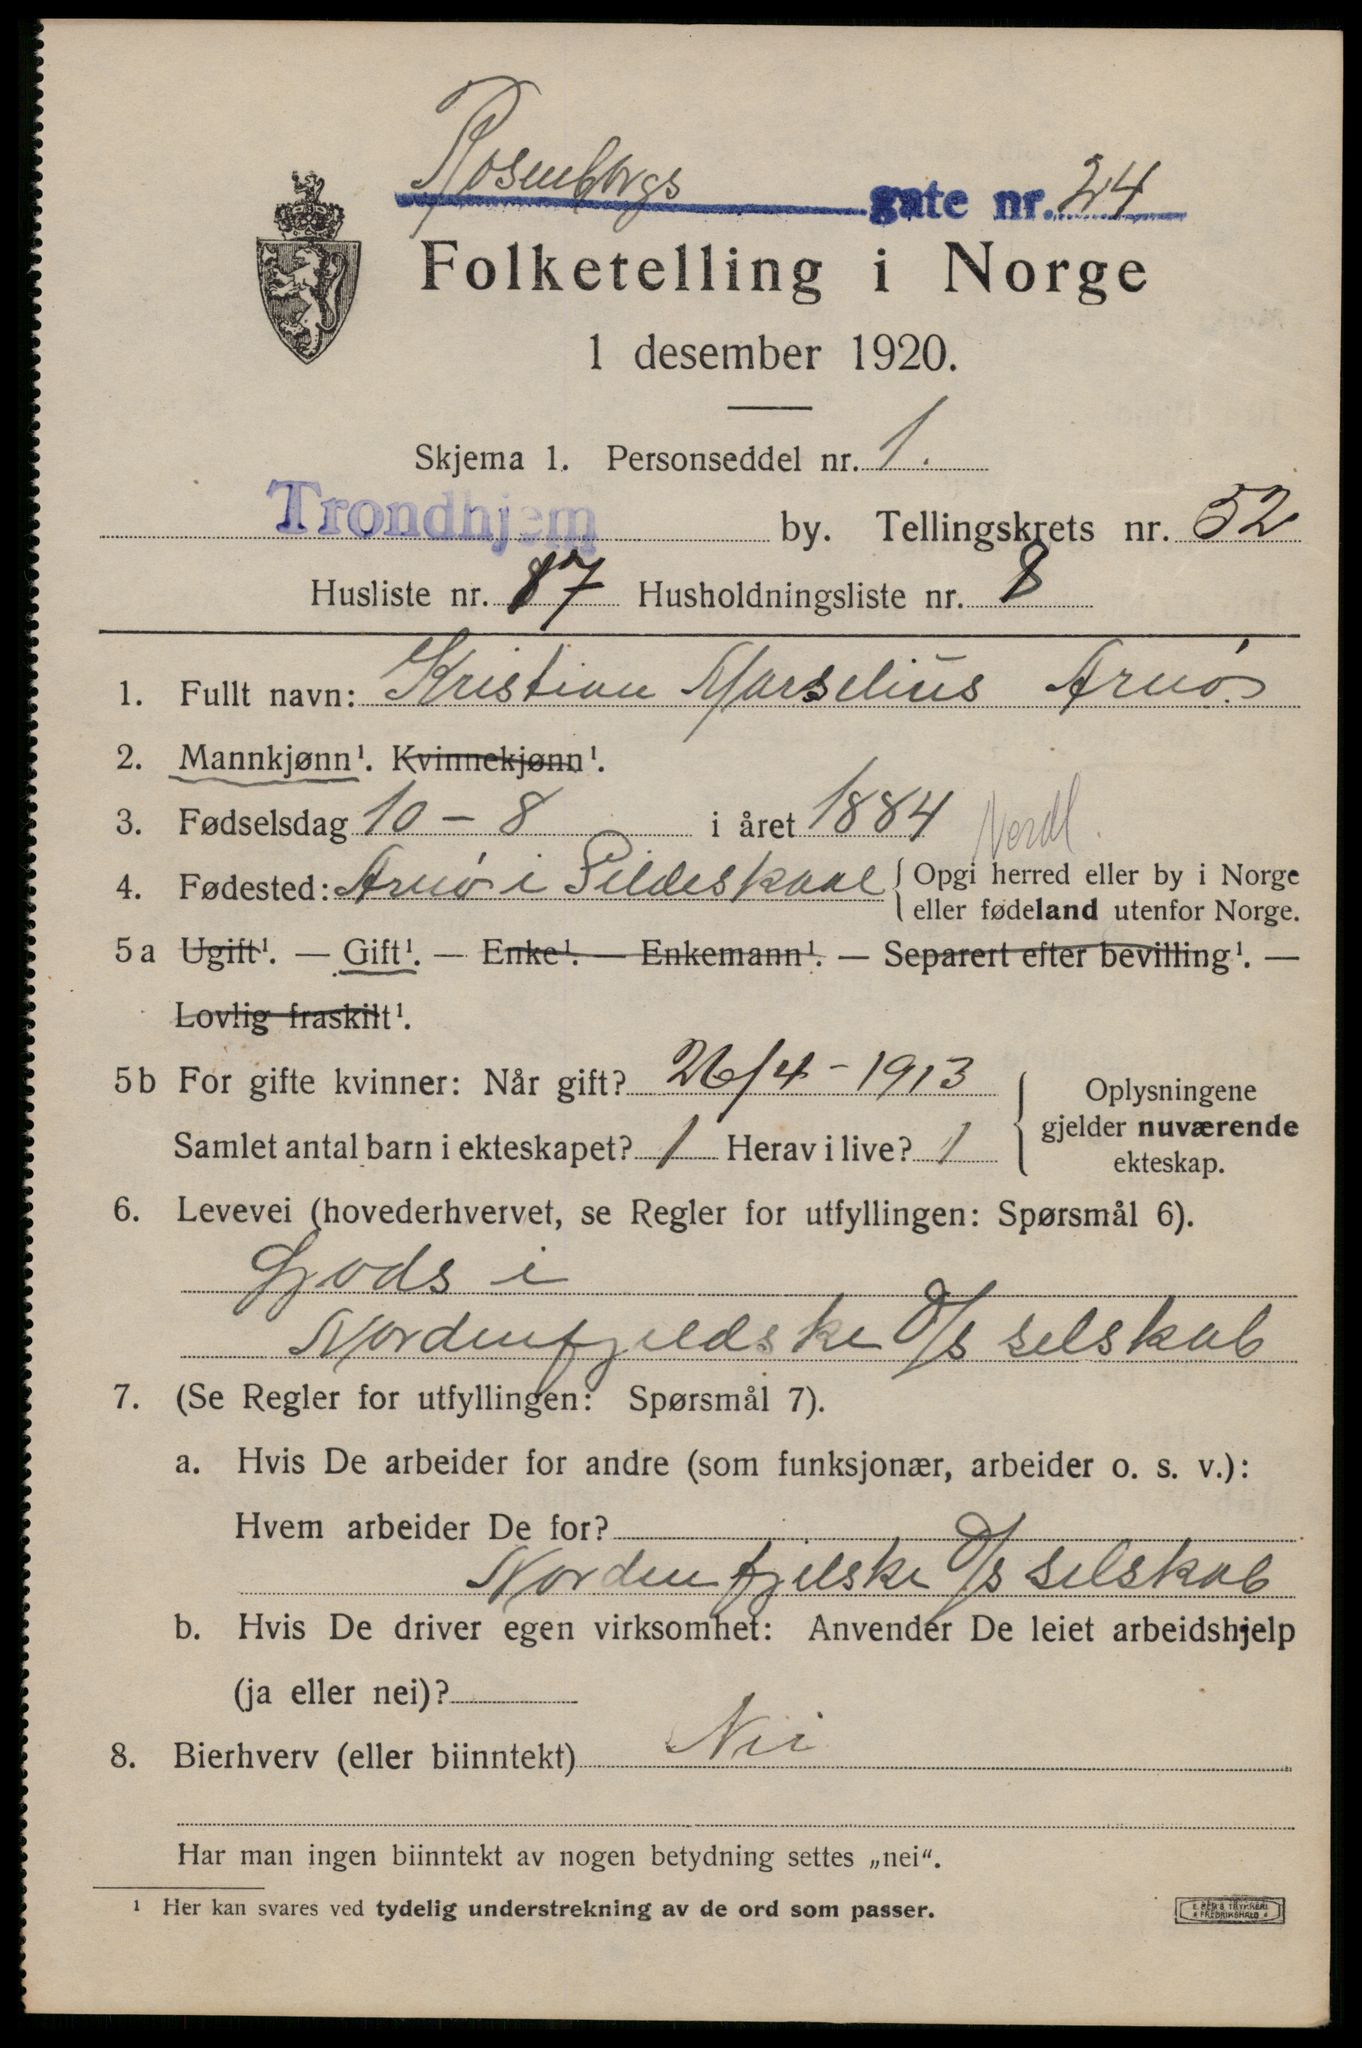 Rosenborgs gate nr. 24
Folketelling i Norge
1 desember 1920.
Skjema 1. Personseddel nr. 1.
Trondhjem by. Tellingskrets nr. 52
Husliste nr. 17 Husholdningsliste nr. 8
1. Fullt navn: Kristian Marselius Arnø.
2. Mannkjønn¹. Kvinnekjønn¹.
3. Fødselsdag 10 – 8 i året 1884 Nordl.
4. Fødested: Arnø i Gildeskaal { Opgi herred eller by i Norge
eller fødeland utenfor Norge.
5 a Ugift¹. — Gift¹. — Enke¹. — Enkemann¹. — Separert efter bevilling¹. —
Lovlig fraskilt¹.
5 b For gifte kvinner: Når gift? 26/4 - 1913
Samlet antal barn i ekteskapet? 1 Herav i live? 1
Oplysningene
gjelder nuværende
ekteskap.
6. Levevei (hovederhvervet, se Regler for utfyllingen: Spørsmål 6).
Gods i
Nordenfjeldske D/s selskab
7. (Se Regler for utfyllingen: Spørsmål 7).
a. Hvis De arbeider for andre (som funksjonær, arbeider o. s. v.):
Hvem arbeider De for?
Nordenfjelske D/s selskab
b. Hvis De driver egen virksomhet: Anvender De leiet arbeidshjelp
(ja eller nei)?
8. Bierhverv (eller biinntekt) Nei
Har man ingen biinntekt av nogen betydning settes „nei“.
¹ Her kan svares ved tydelig understrekning av de ord som passer.
E. SEM'S TRYKKERI
FREDRIKSHALD